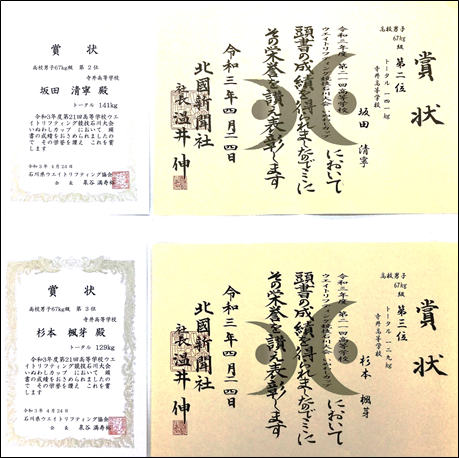 賞状
高校男子67kg級 第2位
寺井高等学校
坂田 清寧 殿
トータル 141kg
令和3年度第21回高等学校ウエ
イトリフティング競技石川大会
いぬわしカップ において 頭
書の成績をおさめられましたの
で その栄誉を讃え これを賞
します
令和3年4月24日
石川県ウエイトリフティング協会
会長 泉谷 満寿裕
賞状
高校男子67kg級 第二位
トータル 一四一kg
寺井高等学校
坂田 清寧
令和三年度 第二一回高等学校
ウエイトリフティング競技石川大会 において
頭書の成績を得られましたのでここに
その栄誉を讃え表彰します
令和三年四月二四日
北國新聞社
社長 温井 伸
賞状
高校男子67kg級 第3位
寺井高等学校
杉本 楓芽 殿
トータル 129kg
令和3年度第21回高等学校ウエ
イトリフティング競技石川大会
いぬわしカップ において 頭
書の成績をおさめられましたの
で その栄誉を讃え これを賞
します
令和3年4月24日
石川県ウエイトリフティング協会
会長 泉谷 満寿裕
賞状
高校男子67kg級 第三位
トータル 一二九kg
寺井高等学校
杉本 楓芽
令和三年度 第二一回高等学校
ウエイトリフティング競技石川大会 において
頭書の成績を得られましたのでここに
その栄誉を讃え表彰します
令和三年四月二四日
北國新聞社
社長 温井 伸